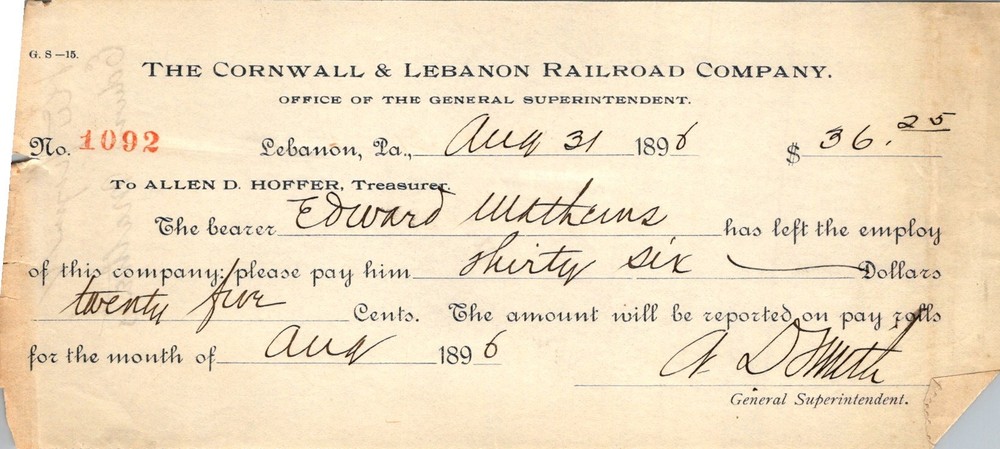 G. S—15.
THE CORNWALL & LEBANON RAILROAD COMPANY.
OFFICE OF THE GENERAL SUPERINTENDENT.
No. 1092 Lebanon, Pa., Aug 31 1896 $ 36.25
To ALLEN D. HOFFER, Treasurer.
The bearer Edward Mathews has left the employ
of this company; please pay him thirty six Dollars
twenty five Cents. The amount will be reported on pay rolls
for the month of Aug 1896 A D Smith
General Superintendent.